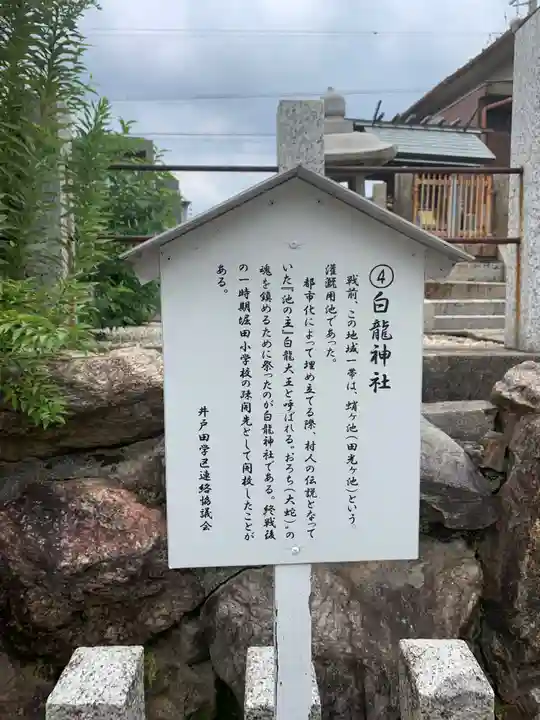 ④白龍神社
戦前、この地域一帯は、蛸ヶ池(田光ヶ池)という、
灌漑用池であった。
都市化によって埋め立てる際、村人の伝説となって
いた『池の主』白龍大王と呼ばれる。おろち(大蛇)。の
魂を鎮めるために祭ったのが白龍神社である。終戦後
の一時期堀田小学校の疎開先として開校したことが
ある。
井戸田学区連絡協議会